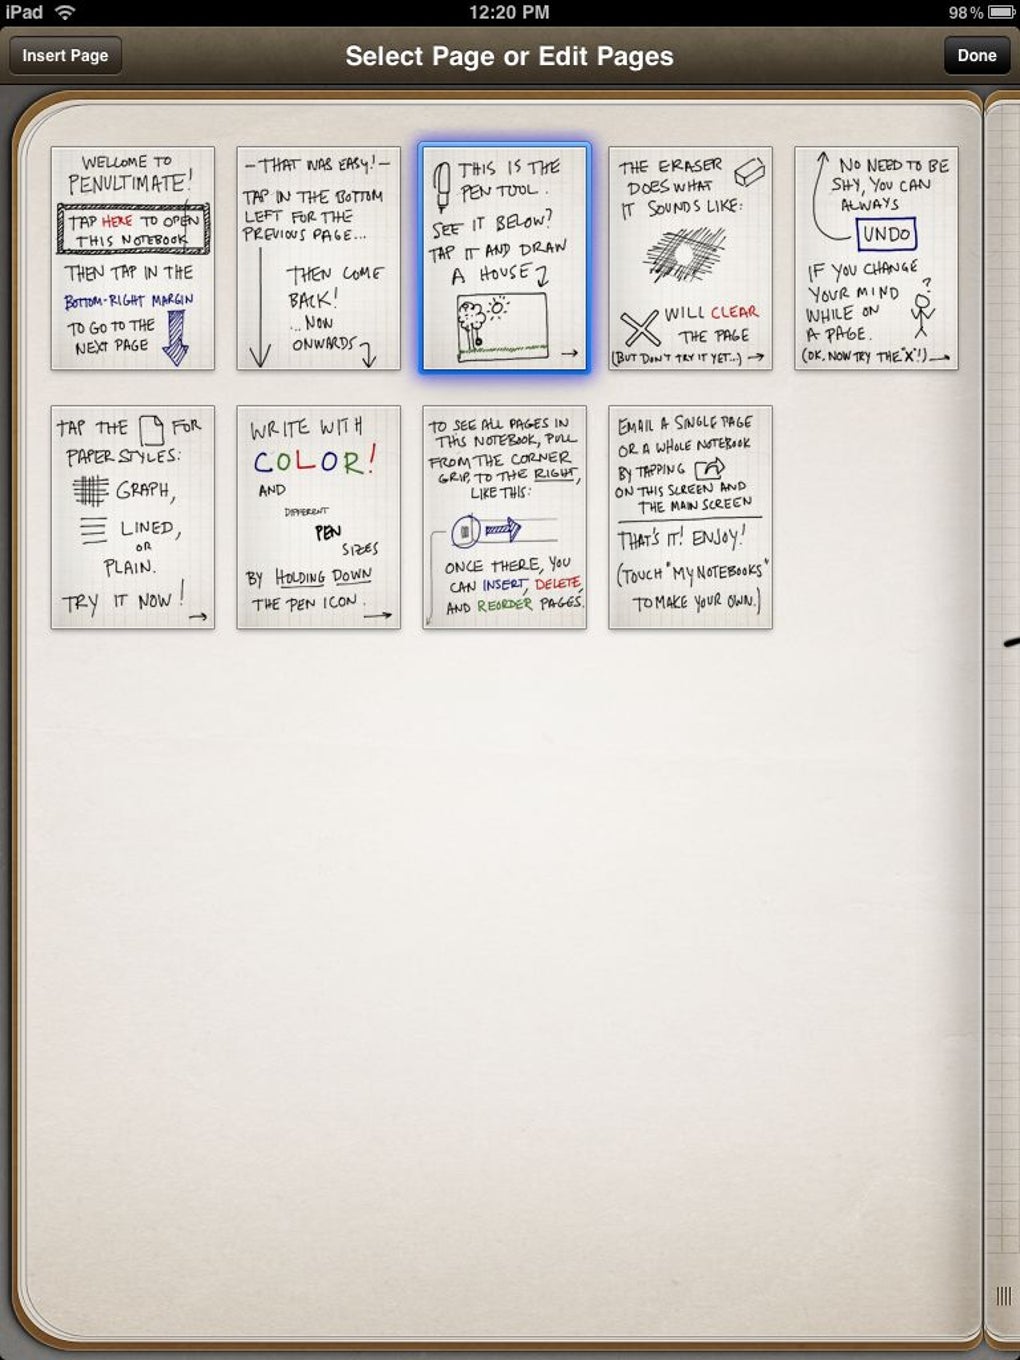 iPad
12:20 PM
98%
Insert Page
Select Page or Edit Pages
Done
WELCOME TO
PENULTIMATE!
TAP HERE TO OPEN
THIS NOTEBOOK
THEN TAP IN THE
BOTTOM-RIGHT MARGIN
TO GO TO THE
NEXT PAGE
-THAT WAS EASY!-
TAP IN THE BOTTOM
LEFT FOR THE
PREVIOUS PAGE...
THEN COME
BACK!
...NOW
ONWARDS
THIS IS THE
PEN TOOL.
SEE IT BELOW?
TAP IT AND DRAW
A HOUSE
THE ERASER
DOES WHAT
IT SOUNDS LIKE:
WILL CLEAR
THE PAGE
(BUT DON'T TRY IT YET...)
NO NEED TO BE
SHY, YOU CAN
ALWAYS
UNDO
IF YOU CHANGE
YOUR MIND
WHILE ON
A PAGE.
?
(OK, NOW TRY THE "X"!)
TAP THE FOR
PAPER STYLES:
GRAPH,
LINED,
OR
PLAIN.
TRY IT NOW!
WRITE WITH
COLOR!
AND
DIFFERENT
PEN
SIZES
BY HOLDING DOWN
THE PEN ICON.
TO SEE ALL PAGES IN
THIS NOTEBOOK, PULL
FROM THE CORNER
GRIP, TO THE RIGHT,
LIKE THIS:
ONCE THERE, YOU
CAN INSERT, DELETE,
AND REORDER PAGES.
EMAIL A SINGLE PAGE
OR A WHOLE NOTEBOOK
BY TAPPING
ON THIS SCREEN AND
THE MAIN SCREEN
THAT'S IT! ENJOY!
(TOUCH "MY NOTEBOOKS"
TO MAKE YOUR OWN.)